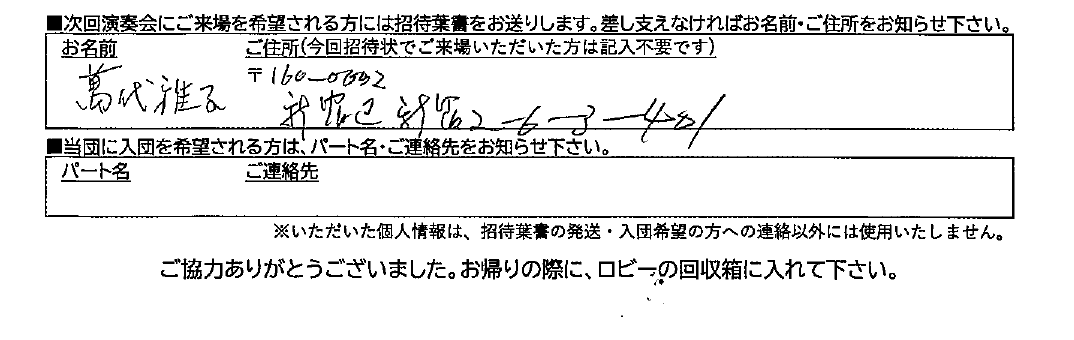 ■次回演奏会にご来場を希望される方には招待葉書をお送りします。差し支えなければお名前・ご住所をお知らせ下さい。
お名前 ご住所(今回招待状でご来場いただいた方は記入不要です)
萬代雅子 〒160-0022
新宿区新宿2-6-3-401
■当団に入団を希望される方は、パート名・ご連絡先をお知らせ下さい。
パート名 ご連絡先
※いただいた個人情報は、招待葉書の発送・入団希望の方への連絡以外には使用いたしません。
ご協力ありがとうございました。お帰りの際に、ロビーの回収箱に入れて下さい。